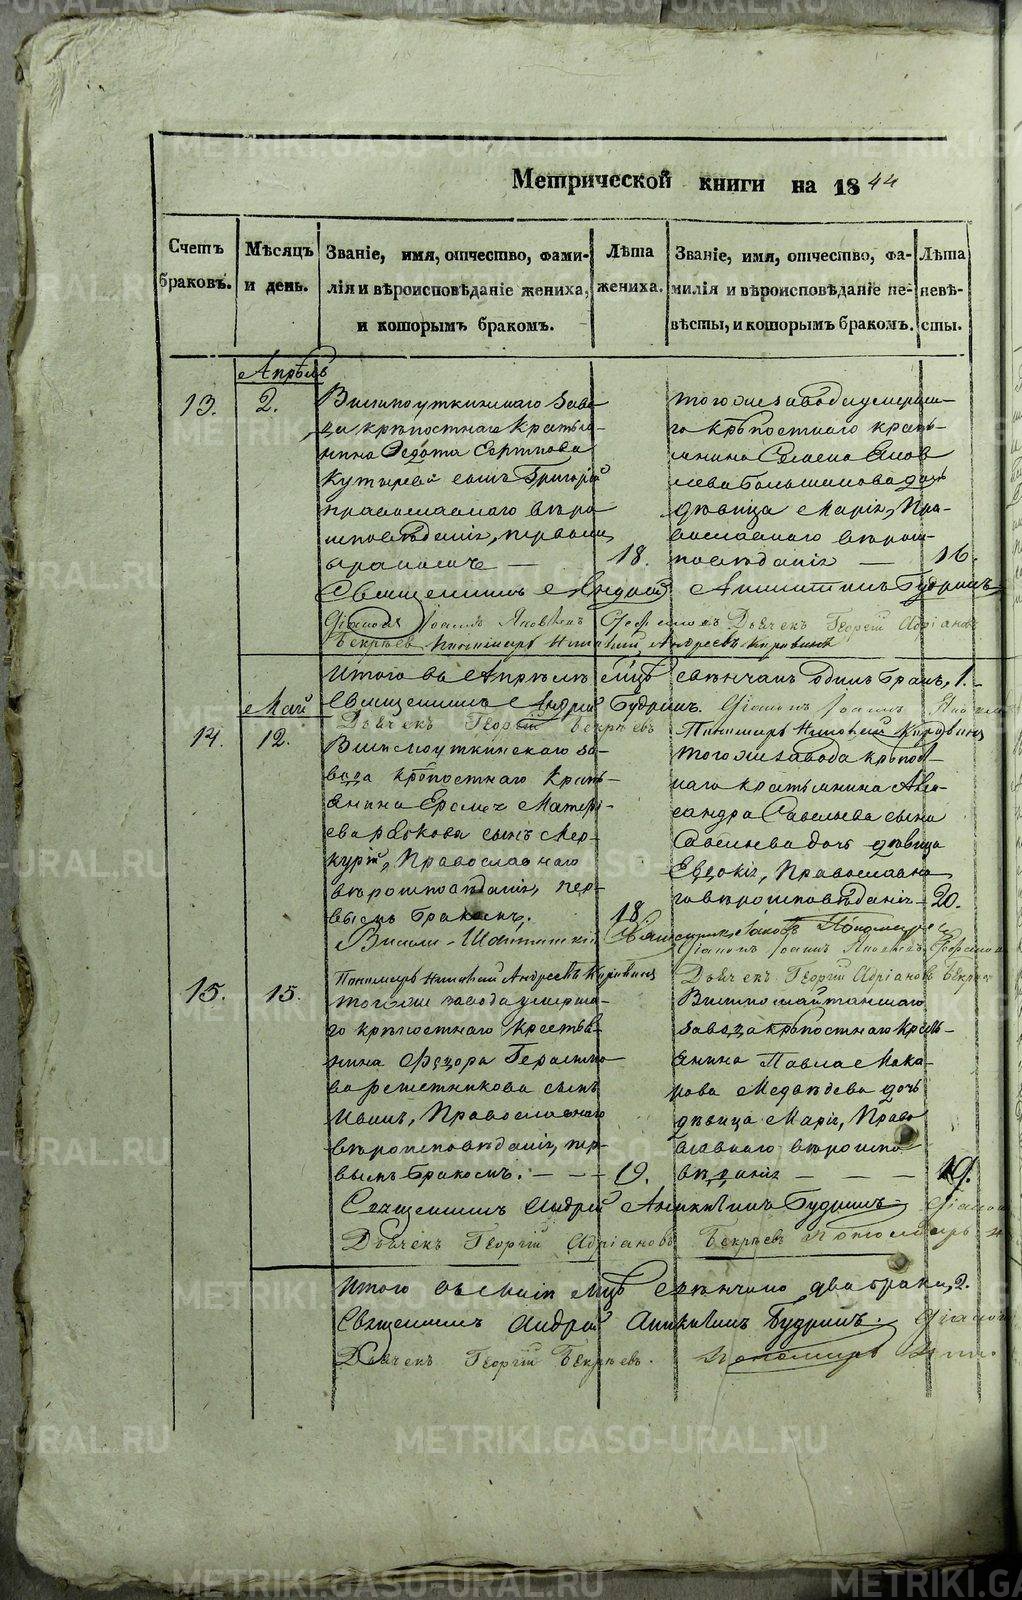 METRIKI.GASO-URAL.RU
Метрической книги на 1844
Счетъ браковъ.
Мѣсяцъ и день.
Званіе, имя, отчество, фами-
лія и вѣроисповѣданіе жениха,
и которымъ бракомъ.
Лѣта жениха.
Званіе, имя, отчество, фа-
милія и вѣроисповѣданіе не-
вѣсты, и которымъ бракомъ.
Лѣта невѣ-
сты.
Апрѣль
13.
2.
Висимоуткинскаго заво-
да крѣпостнаго крестья-
нина Федота
сынъ Григорій
православнаго вѣро
исповѣданія, первымъ
бракомъ
18.
тогоже завода умерша-
го крѣпостнаго кресть-
янина Семена
Большакова дочь
дѣвица Марія, Пра-
вославнаго вѣроис-
повѣданія
16.
Священникъ Андрей Аникитинъ Будринъ
Діаконъ Іоаннъ Яковлевъ Дьячекъ Георгій Адріановъ
Бекрѣевъ Пономарь Андреевъ
Итого въ Апрѣлѣ м-цѣ свѣнчанъ одинъ бракъ, 1.
Священникъ Андрей Будринъ. Діаконъ Іоаннъ
Дьячекъ Георгій Бекрѣевъ Пономарь
Май
14.
12.
Висимоуткинскаго за-
вода крѣпостнаго кресть-
янина
сынъ Мер-
курій, Православнаго
вѣроисповѣданія, пер-
вымъ бракомъ.
18.
тогоже завода крѣпост-
наго крестьянина Алек-
сандра Савельева сына
Савельева дочь дѣвица
Евдокія, Православна-
го вѣроисповѣданія
20.
Висимо-Шайтанскій Священникъ Іаковъ Пономаревъ
Діаконъ Іоаннъ Яковлевъ
Пономарь Андреевъ
Дьячекъ Георгій Адріановъ Бекрѣевъ
15.
15.
тогоже завода умерша-
го крѣпостнаго крестья-
нина Федора Герасимо-
ва Решетникова сынъ
Иванъ, Православнаго
вѣроисповѣданія, пер-
вымъ бракомъ.
19.
Висимошайтанскаго
завода крѣпостнаго кресть-
янина Павла Мака-
рова Медвѣдева дочь
дѣвица Марія, Право
славнаго вѣроиспо
вѣданія
19.
Священникъ Андрей Аникитинъ Будринъ Діаконъ
Дьячекъ Георгій Адріановъ Бекрѣевъ пономарь
Итого въ Маіи м-цѣ свѣнчано два брака, 2.
Священникъ Андрей Аникитинъ Будринъ. Діаконъ
Дьячекъ Георгій Бекрѣевъ. Пономарь